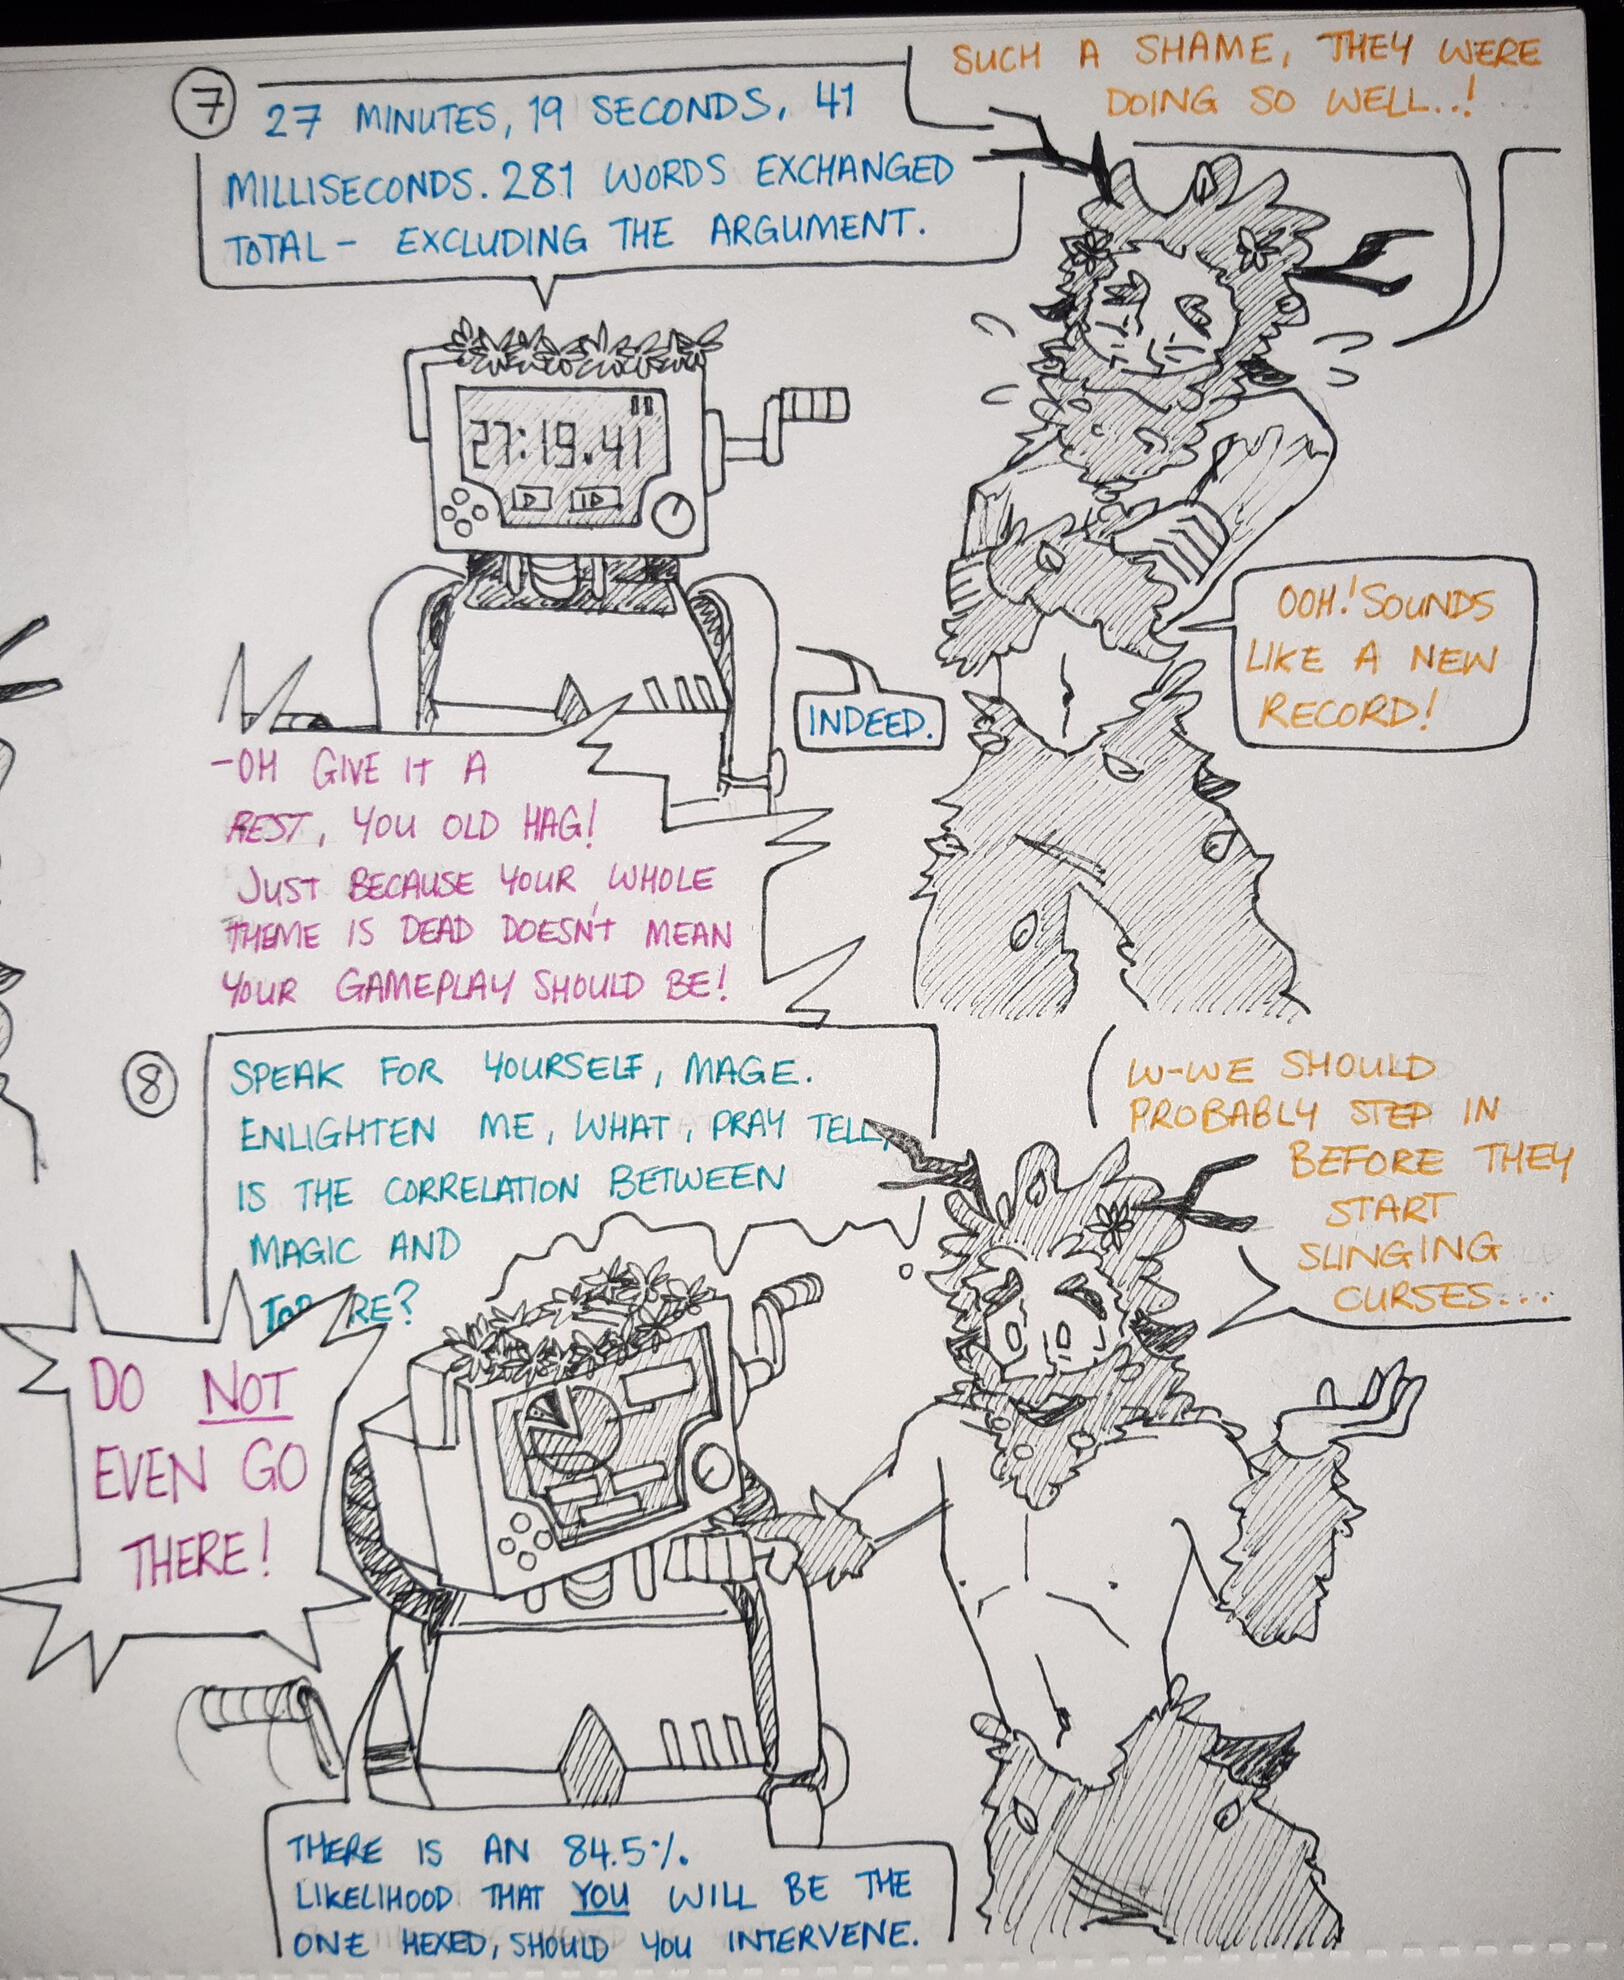 SUCH A SHAME, THEY WERE
DOING SO WELL..!
7
27 MINUTES, 19 SECONDS, 41
MILLISECONDS. 281 WORDS EXCHANGED
TOTAL - EXCLUDING THE ARGUMENT.
27:19.41
OOH! SOUNDS
LIKE A NEW
RECORD!
INDEED.
-OH GIVE IT A
REST, YOU OLD HAG!
JUST BECAUSE YOUR WHOLE
THEME IS DEAD DOESN'T MEAN
YOUR GAMEPLAY SHOULD BE!
8
SPEAK FOR YOURSELF, MAGE.
ENLIGHTEN ME, WHAT, PRAY TELL,
IS THE CORRELATION BETWEEN
MAGIC AND
W-WE SHOULD
PROBABLY STEP IN
BEFORE THEY
START
SLINGING
CURSES...
DO NOT
EVEN GO
THERE!
THERE IS AN 84.5%
LIKELIHOOD THAT YOU WILL BE THE
ONE HEXED, SHOULD YOU INTERVENE.